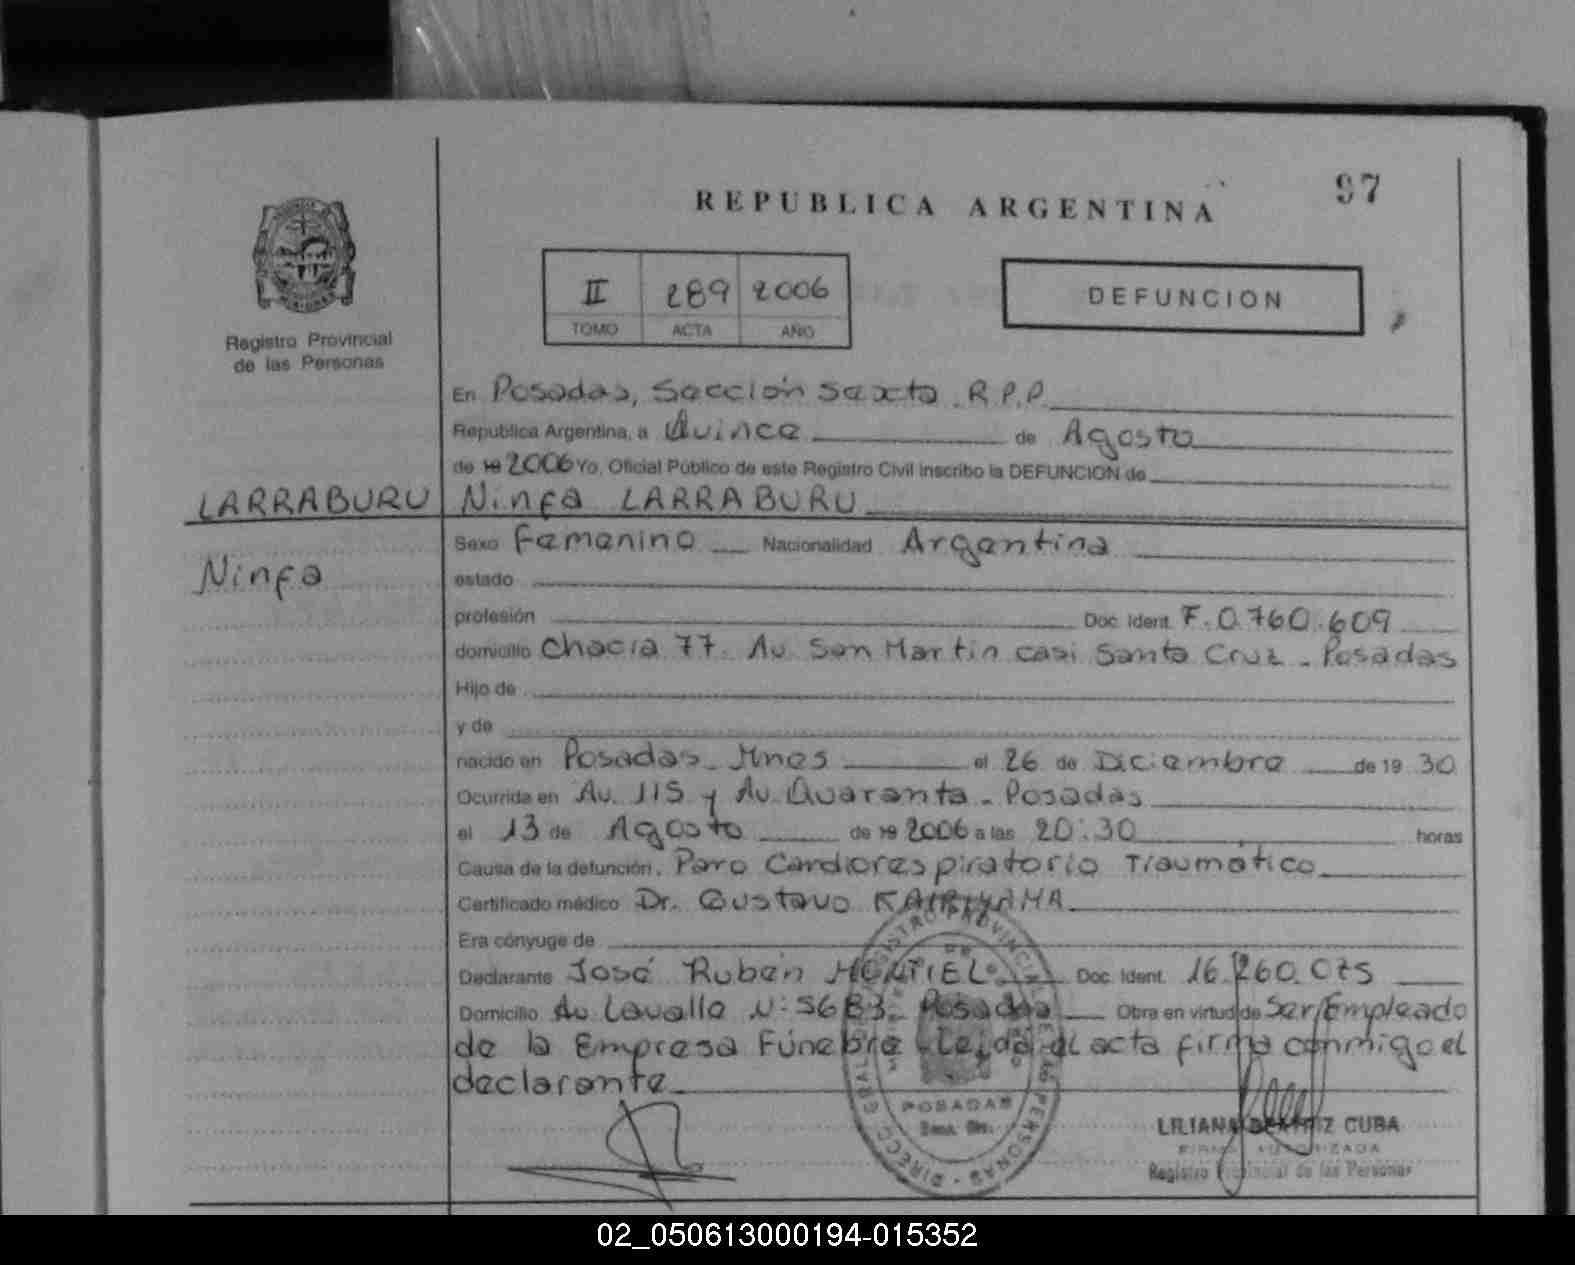 REPUBLICA ARGENTINA
97
II 289 2006
TOMO ACTA AÑO
DEFUNCION
Registro Provincial
de las Personas
En Posadas, Sección Sexta. R.P.P.
Republica Argentina, a Quince de Agosto
de 19 2006 Yo, Oficial Público de este Registro Civil inscribo la DEFUNCION de
LARRABURU Ninfa LARRABURU
Sexo Femenino Nacionalidad Argentina
Ninfa
estado
profesión Doc. Ident. F. 0.760.609
domicilio Chacra 77. Av San Martín casi Santa Cruz - Posadas
Hijo de
y de
nacido en Posadas - Mnes el 26 de Diciembre de 19 30
Ocurrida en Av. 115 y Av. Quaranta - Posadas
el 13 de Agosto de 19 2006 a las 20:30 horas
Causa de la defunción, Paro Cardiorespiratorio Traumático
Certificado médico Dr. Gustavo
Era cónyuge de
Declarante José Rubén MONTIEL Doc. Ident. 16.260.075
Domicilio Av Lavalle N: 5683. Posadas Obra en virtud de Ser Empleado
de la Empresa Fúnebre. Leída el acta firma conmigo el
declarante
POSADAS
LILIANA BEATRIZ CUBA
FIRMA AUTORIZADA
Registro Provincial de las Personas
02_050613000194-015352